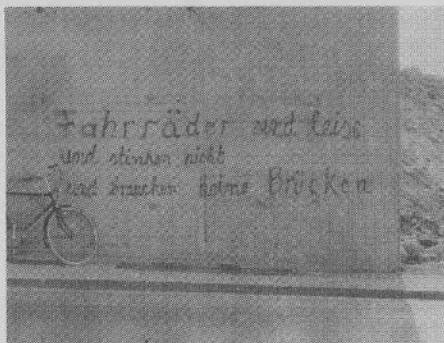 Fahrräder sind leise
und stinken nicht
und brauchen keine Brücken